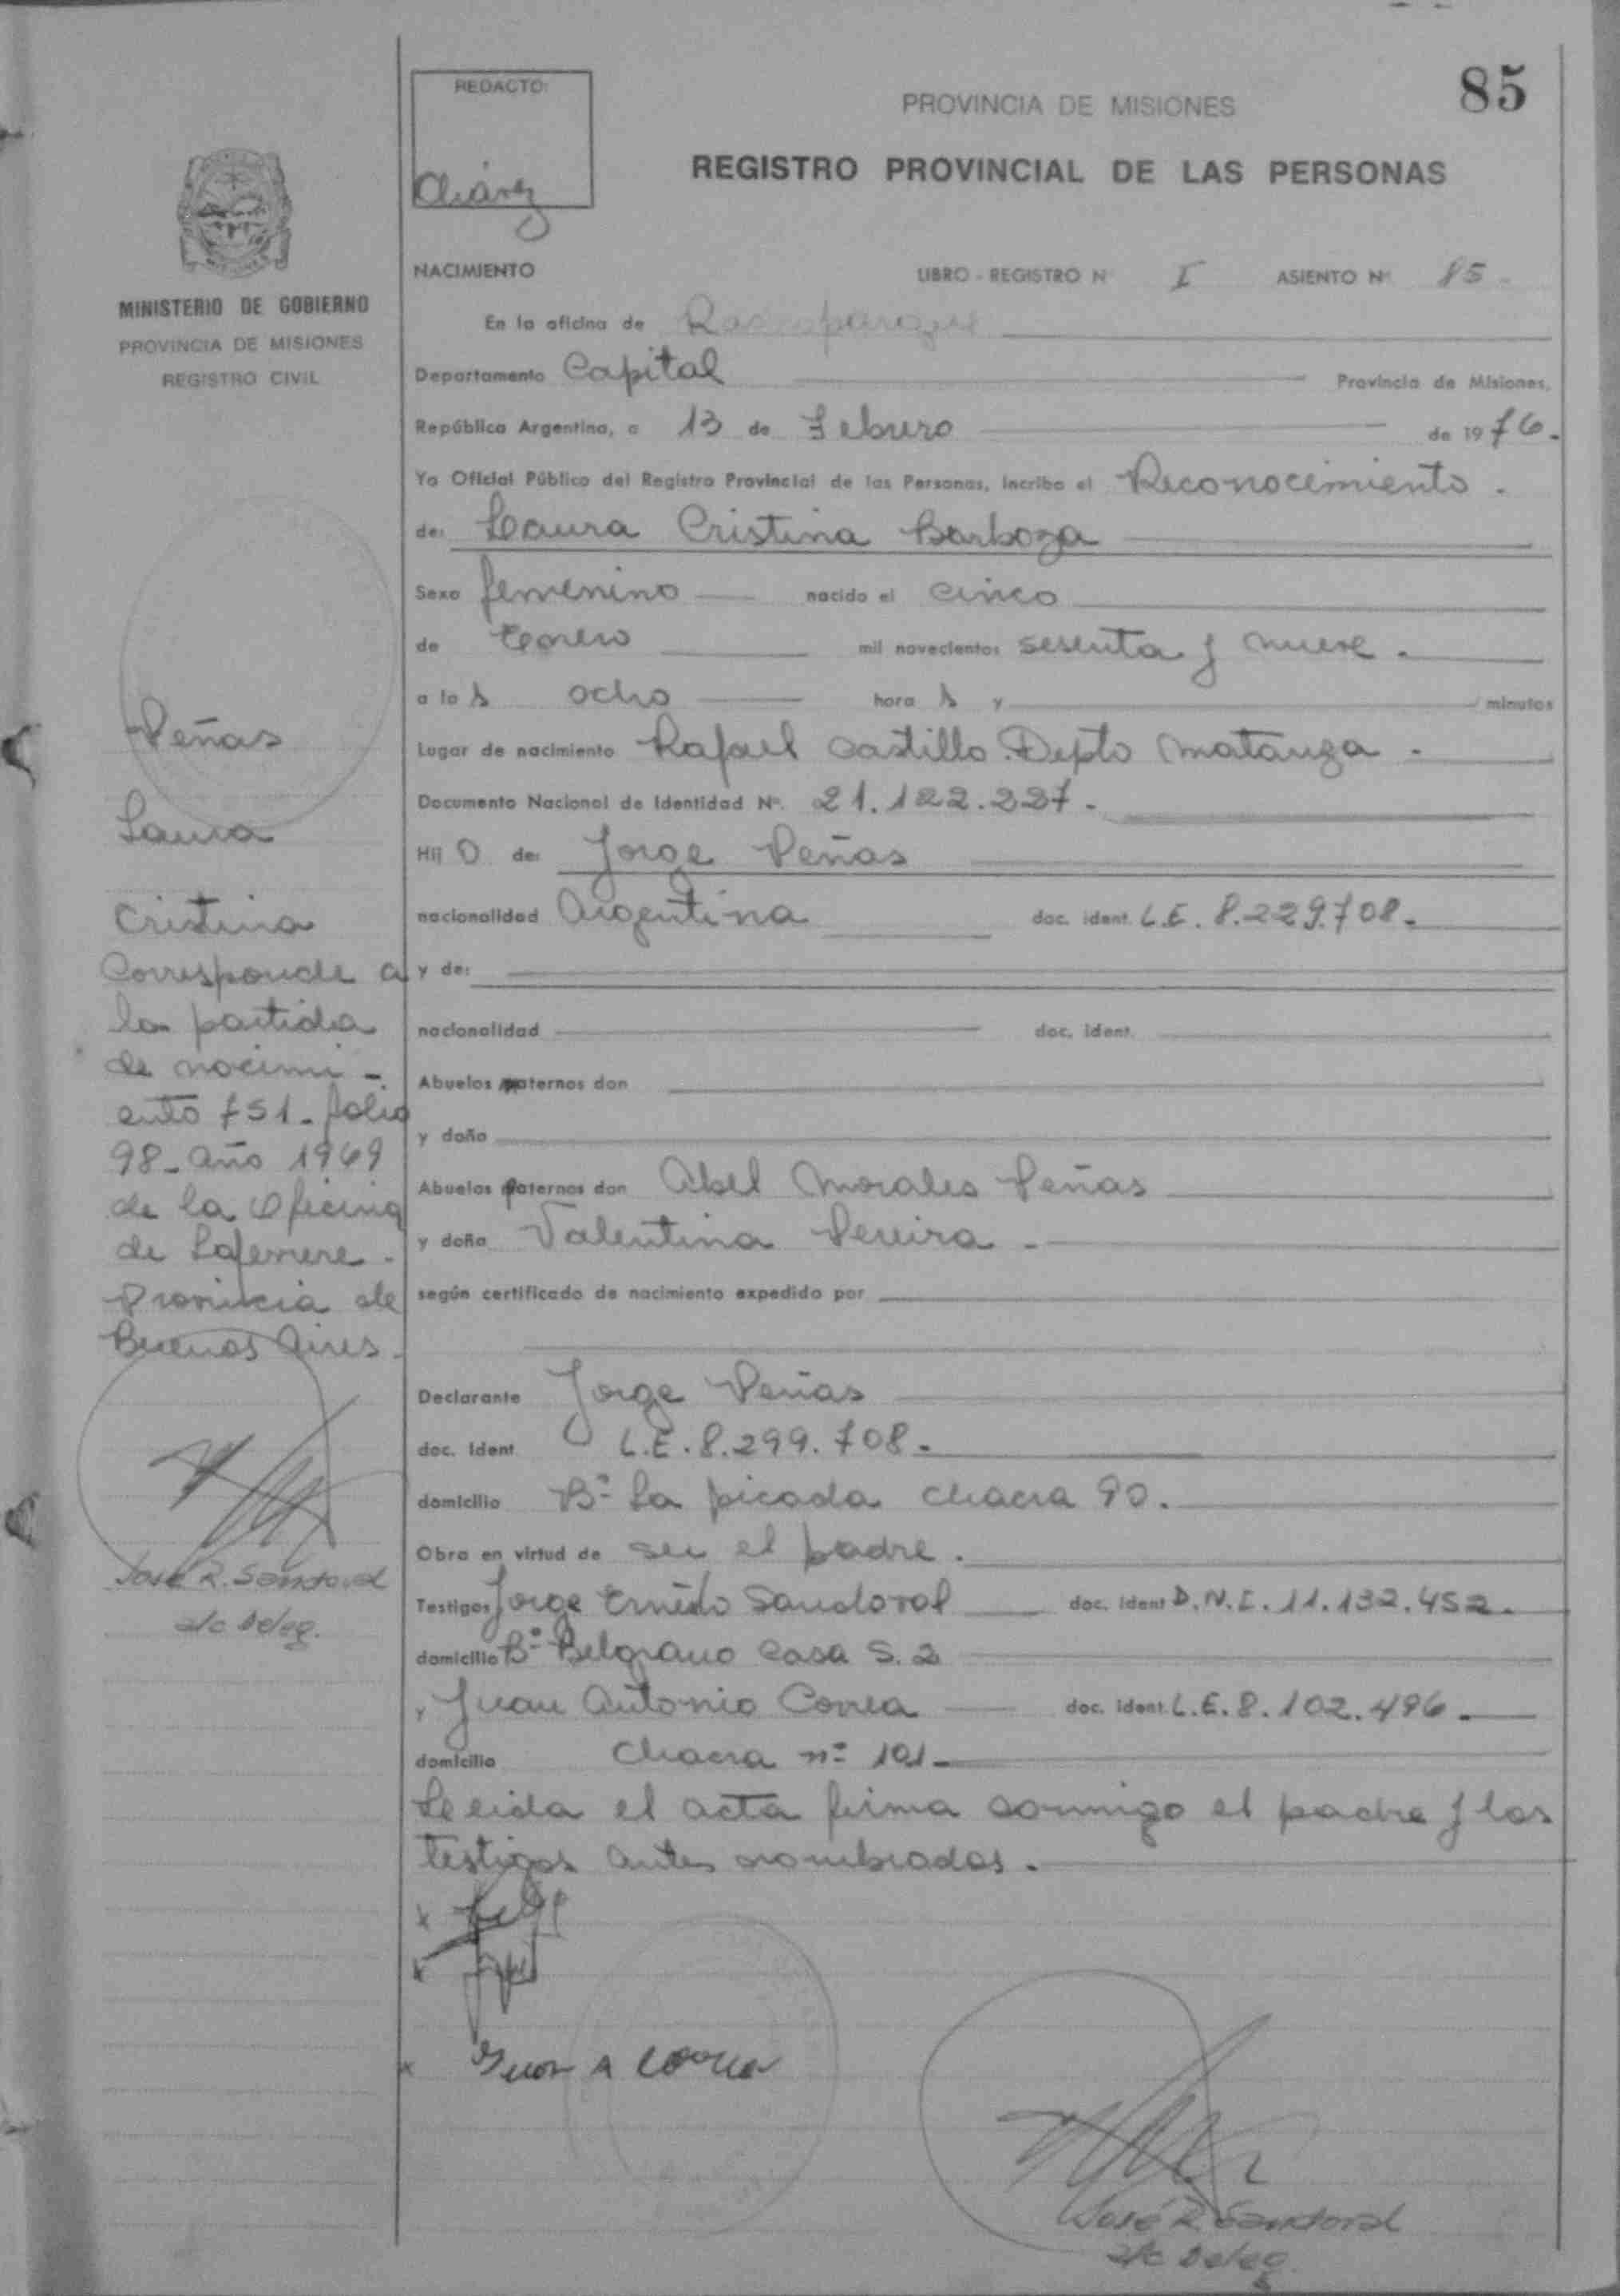 85
REDACTO:
Chávez
PROVINCIA DE MISIONES
REGISTRO PROVINCIAL DE LAS PERSONAS
MINISTERIO DE GOBIERNO
PROVINCIA DE MISIONES
REGISTRO CIVIL
NACIMIENTO LIBRO - REGISTRO N I ASIENTO Nº 85 -
En la oficina de
Departamento Capital Provincia de Misiones,
República Argentina, a 13 de Febrero de 1976.
Yo Oficial Público del Registro Provincial de las Personas, incribo el Reconocimiento.
de: Laura Cristina Barboza
Sexo femenino nacido el cinco
de Enero mil novecientos sesenta y nueve.
a las ocho horas y minutos
Lugar de nacimiento Rafael Castillo. Depto Matanza.
Documento Nacional de Identidad Nº. 21.122.227.
Hij O de: Jorge Peñas
nacionalidad Argentina doc. ident. L.E. 8.229.708.
y de:
nacionalidad doc. ident.
Abuelos maternos don
y doña
Abuelos paternos don Abel Morales Peñas
y doña Valentina Pereira -
según certificado de nacimiento expedido por
Declarante Jorge Peñas
doc. ident L.E. 8.299.708.
domicilio Bº La picada chacra 90.
Obra en virtud de ser el padre.
Testigos Jorge Ernesto Sandoval doc. ident D.N.I. 11.132.452.
domicilio Bº Belgrano Casa S. 2
y Juan Antonio Correa doc. ident. L.E. 8.102.496.
domicilio Chacra nº 101
Leida el acta firma conmigo el padre y los
testigos antes nombrados.
x
x
x Juan A Correa
José R. Sandoval
a/c Deleg.
Peñas
Laura
Cristina
Corresponde a
la partida
de nacimi-
ento 751 - folio
98 - año 1969
de la Oficina
de Laferrere -
Provincia de
Buenos Aires.
José R. Sandoval
a/c Deleg.